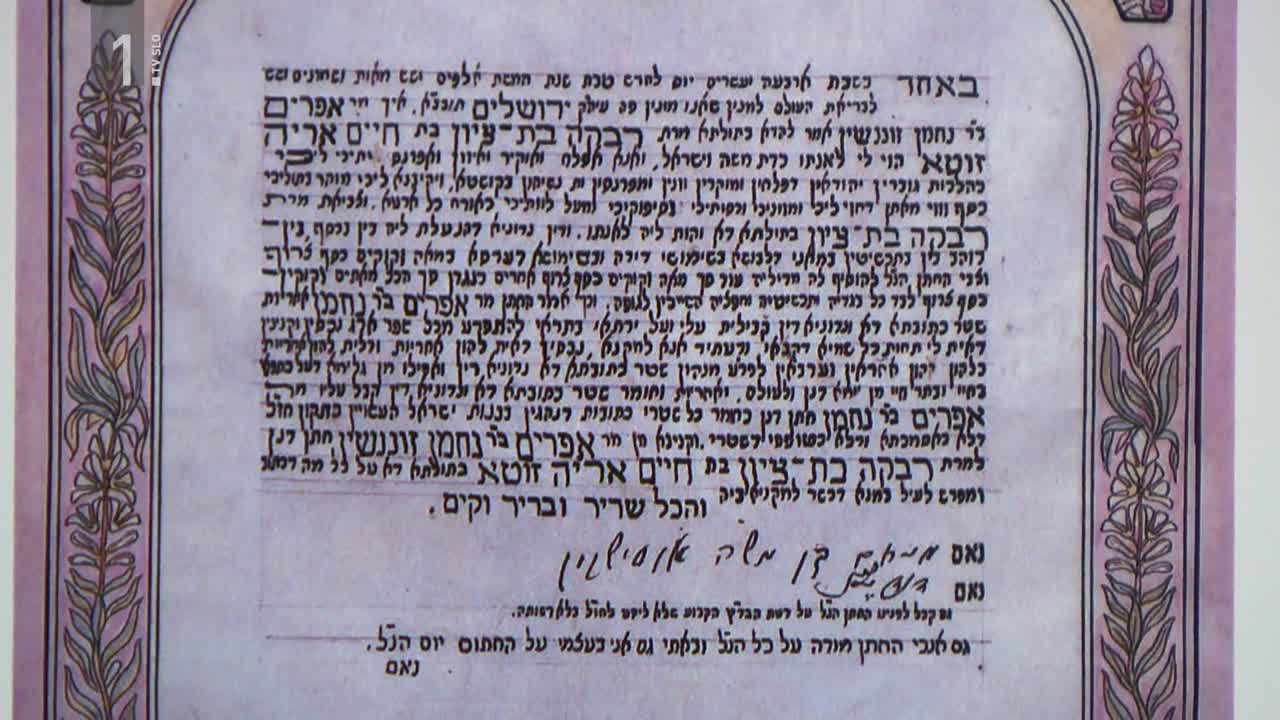 1
TV SLO
באחד בשבת ארבעה ועשרים יום לחדש טבת שנת חמשת אלפים ושש מאות ושמונים ושש
לבריאת העולם למנין שאנו מונין פה עיהק ירושלים תובב״א. איך מר אפרים
ב״ר נחמן זוננשיין אמר להדא בתולתא מרת רבקה בת־ציון בת חיים אריה
זוטא הוי לי לאנתו כדת משה וישראל, ואנא אפלח ואוקיר ואיזון ואפרנס יתיכי ליכי
כהלכות גוברין יהודאין דפלחין ומוקרין וזנין ומפרנסין ית נשיהון בקושטא, ויהיבנא ליכי מוהר בתוליכי
כסף זוזי מאתן דחזי ליכי ומזוניכי וכסותיכי וסיפוקיכי ומעל לוותיכי כאורח כל ארעא. וצביאת מרת
רבקה בת־ציון בתולתא דא והות ליה לאנתו. ודין נדוניא דהנעלת ליה בין בכסף בין
בדהב בין בתכשיטין במאני דלבושא בשימושי דירה ובשימושא דערסא במאה זקוקים כסף צרוף
וצבי החתן הנ״ל להוסיף לה מדיליה עוד סך מאה זקוקים כסף צרוף אחרים כנגדן סך הכל מאתים זקוקין
כסף צרוף לבד כל בגדיה ותכשיטיה וחפציה השייכין לגופה. וכך אמר החתן מר אפרים ב״ר נחמן אחריות
שטר כתובתא דא ונדוניא דין קבילית עלי ועל ירתאי בתראי להתפרע מכל שפר ארג נכסין וקנינין
דאית לי תחות כל שמיא דקנאי ודעתיד אנא למקנא, נכסין דאית להון אחריות ודלית להון אחריות
כלהון יהון אחראין וערבאין לפרוע מנהון שטר כתובתא דא נדוניא דין ואפילו מן גלימא דעל כתפאי
בחיי ובתר חיי מן יומא דנן ולעולם. ואחריות וחומר שטר כתובתא דא ונדוניא דין קבל עליו מר
אפרים ב״ר נחמן חתן דנן כחומר כל שטרי כתובות דנהגין בבנות ישראל העשויין כתקון חז״ל
דלא כאסמכתא ודלא כטופסי דשטרי. וקנינא מן מר אפרים ב״ר נחמן זוננשיין חתן דנן
למרת רבקה בת־ציון בת חיים אריה זוטא בתולתא דא על כל מה דכתוב
ומפרש לעיל במנא דכשר למקניא ביה והכל שריר ובריר וקים.
נאם מנחם בן משה אוסישקין
נאם
גם קבל לפנינו החתן הנ״ל על דעת הבד״ץ הקבוע שלא ליסע לחו״ל בלא רשותה.
גם אנכי החתן מודה על כל הנ״ל ובאתי גם אני בעצמי על החתום יום הנ״ל.
נאם